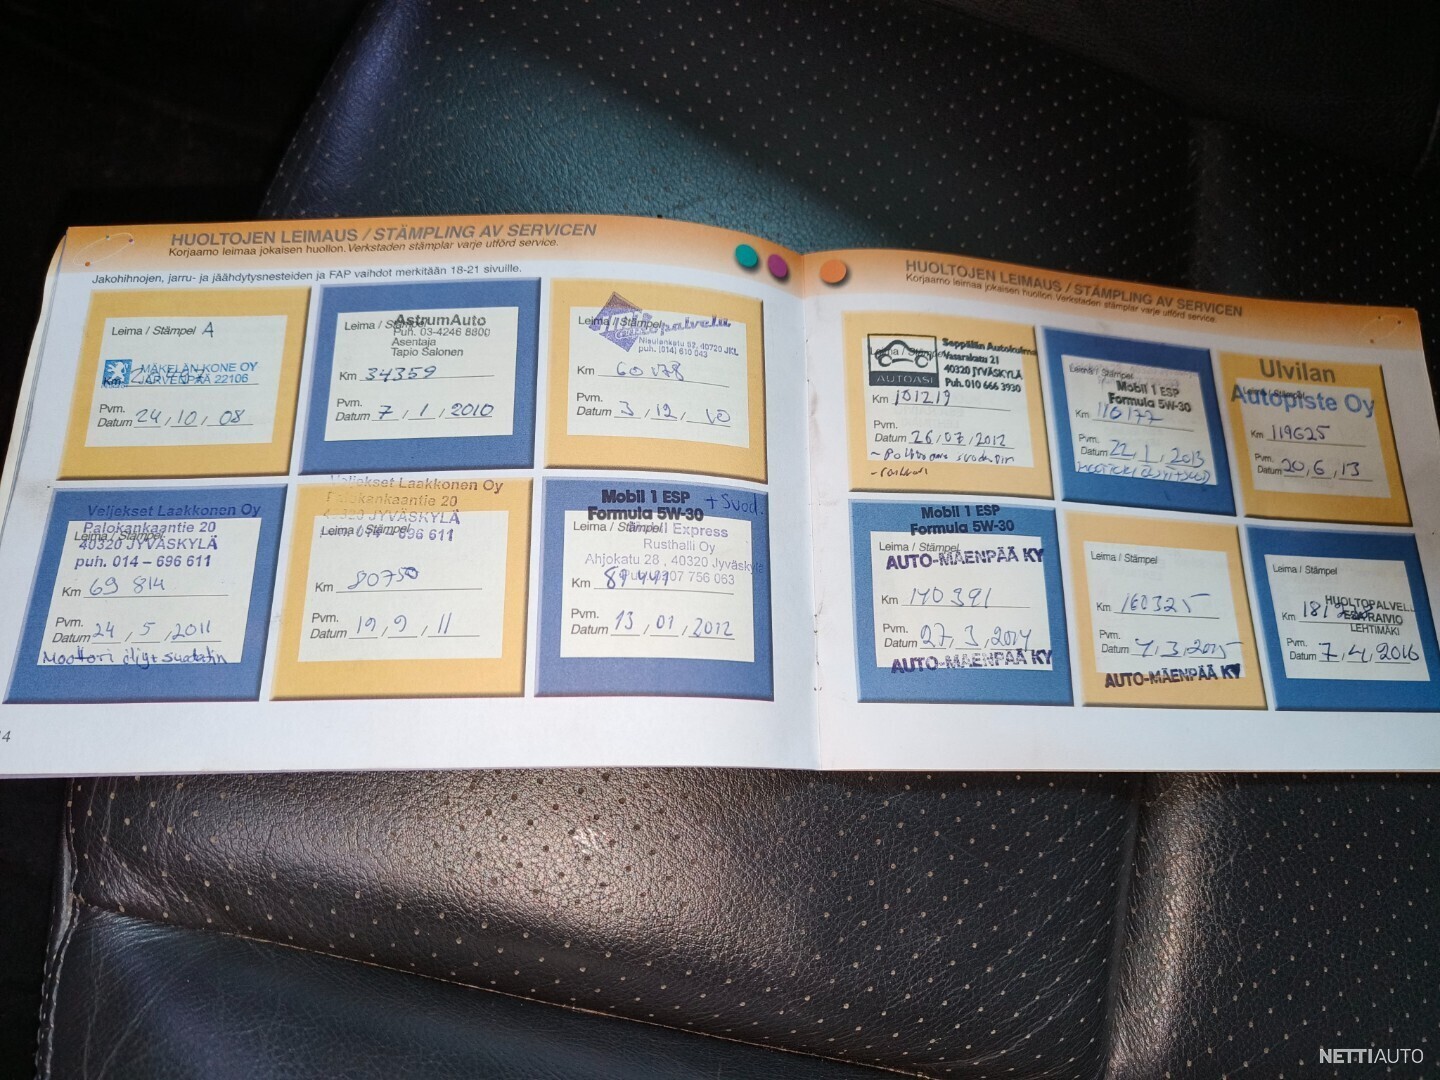 HUOLTOJEN LEIMAUS / STÄMPLING AV SERVICEN
Korjaamo leimaa jokaisen huollon. Verkstaden stämplar varje utförd service.
Jakohihnojen, jarru- ja jäähdytysnesteiden ja FAP vaihdot merkitään 18-21 sivuille.
Leima / Stämpel A
MÄKELÄN KONE OY
JÄRVENPÄÄ 22106
Km
Pvm.
Datum 24, 10, 08
AstrumAuto
Leima / Stämpel
Puh. 03-4246 8800
Asentaja
Tapio Salonen
Km 34359
Pvm.
Datum 7, 1, 2010
Leima / Stämpel
Nisulankatu 52, 40720 JKL
puh. (014) 610 043
Km 60178
Pvm.
Datum 3, 12, 10
Veljekset Laakkonen Oy
Palokankaantie 20
Leima / Stämpel
40320 JYVÄSKYLÄ
puh. 014 – 696 611
Km 69 814
Pvm.
Datum 24, 5, 2011
Moottori öljy+suodatin
Veljekset Laakkonen Oy
Palokankaantie 20
40320 JYVÄSKYLÄ
Leima / Stämpel
puh. 014 – 696 611
Km 80750
Pvm.
Datum 19, 9, 11
Mobil 1 ESP + Suod.
Formula 5W-30
Leima / Stämpel
Express
Rusthalli Oy
Ahjokatu 28, 40320 Jyväskylä
0207 756 063
Km
Pvm.
Datum 13, 01, 2012
14
HUOLTOJEN LEIMAUS / STÄMPLING AV SERVICEN
Korjaamo leimaa jokaisen huollon. Verkstaden stämplar varje utförd service.
Leima / Stämpel
AUTOASI
Seppälän Autokulma
Vasarakatu 21
40320 JYVÄSKYLÄ
Puh. 010 666 3930
Km 101219
Pvm.
Datum 26, 07, 2012
Leima / Stämpel
Mobil 1 ESP
Formula 5W-30
Km 110177
Pvm.
Datum 22, 1, 2013
Ulvilan
Autopiste Oy
Km 119625
Pvm.
Datum 20, 6, 13
Mobil 1 ESP
Formula 5W-30
Leima / Stämpel
AUTO-MÄENPÄÄ KY
Km 140391
Pvm.
Datum 27, 3, 2014
AUTO-MÄENPÄÄ KY
Leima / Stämpel
Km 160325
Pvm.
Datum 4, 3, 2015
AUTO-MÄENPÄÄ KY
Leima / Stämpel
HUOLTOPALVELU
LEHTIMÄKI
Km
Pvm.
Datum 7, 4, 2016
NETTIAUTO